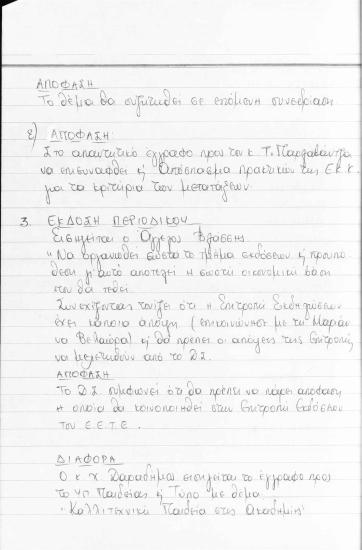 ΑΠΟΦΑΣΗ
Το θέμα θα συζητηθεί σε επόμενη συνεδρίαση
ε) ΑΠΟΦΑΣΗ:
Στο απαντητικό έγγραφο προς τον κ. Τ.
να επισυναφθεί κ' Απόσπασμα Πρακτικών της Ε.Κ.Χ.
για τα κριτήρια των μετατάξεων
3. ΕΚΔΟΣΗ ΠΕΡΙΟΔΙΚΟΥ
Εισηγείται ο Άγγελος Βλάσσης
"Να οργανωθεί σωστά το τμήμα εκδόσεων κ' προϋπό
θεση γι' αυτό αποτελεί η σωστή οικονομική βάση
που θα τεθεί.
Συνεχίζοντας τονίζει ότι η Επιτροπή Εκδηλώσεων
έχει κάποια άποψη (επικοινώνησε με τη Μαρία
να κ' θα πρέπει οι απόψεις της Επιτροπής
να μελετηθούν από το Δ.Σ.
ΑΠΟΦΑΣΗ
Το Δ.Σ. συμφωνεί ότι θα πρέπει να πάρει απόφαση
η οποία θα κοινοποιηθεί στην Επιτροπή Εκδόσεων
του Ε.Ε.Τ.Ε.
ΔΙΑΦΟΡΑ
Ο κ. Χ. Δαραδήμος εισηγείται το έγγραφο προς
το Υπ. Παιδείας κ' Τύπο με θέμα
"Καλλιτεχνική Παιδεία στις Ακαδημίες"